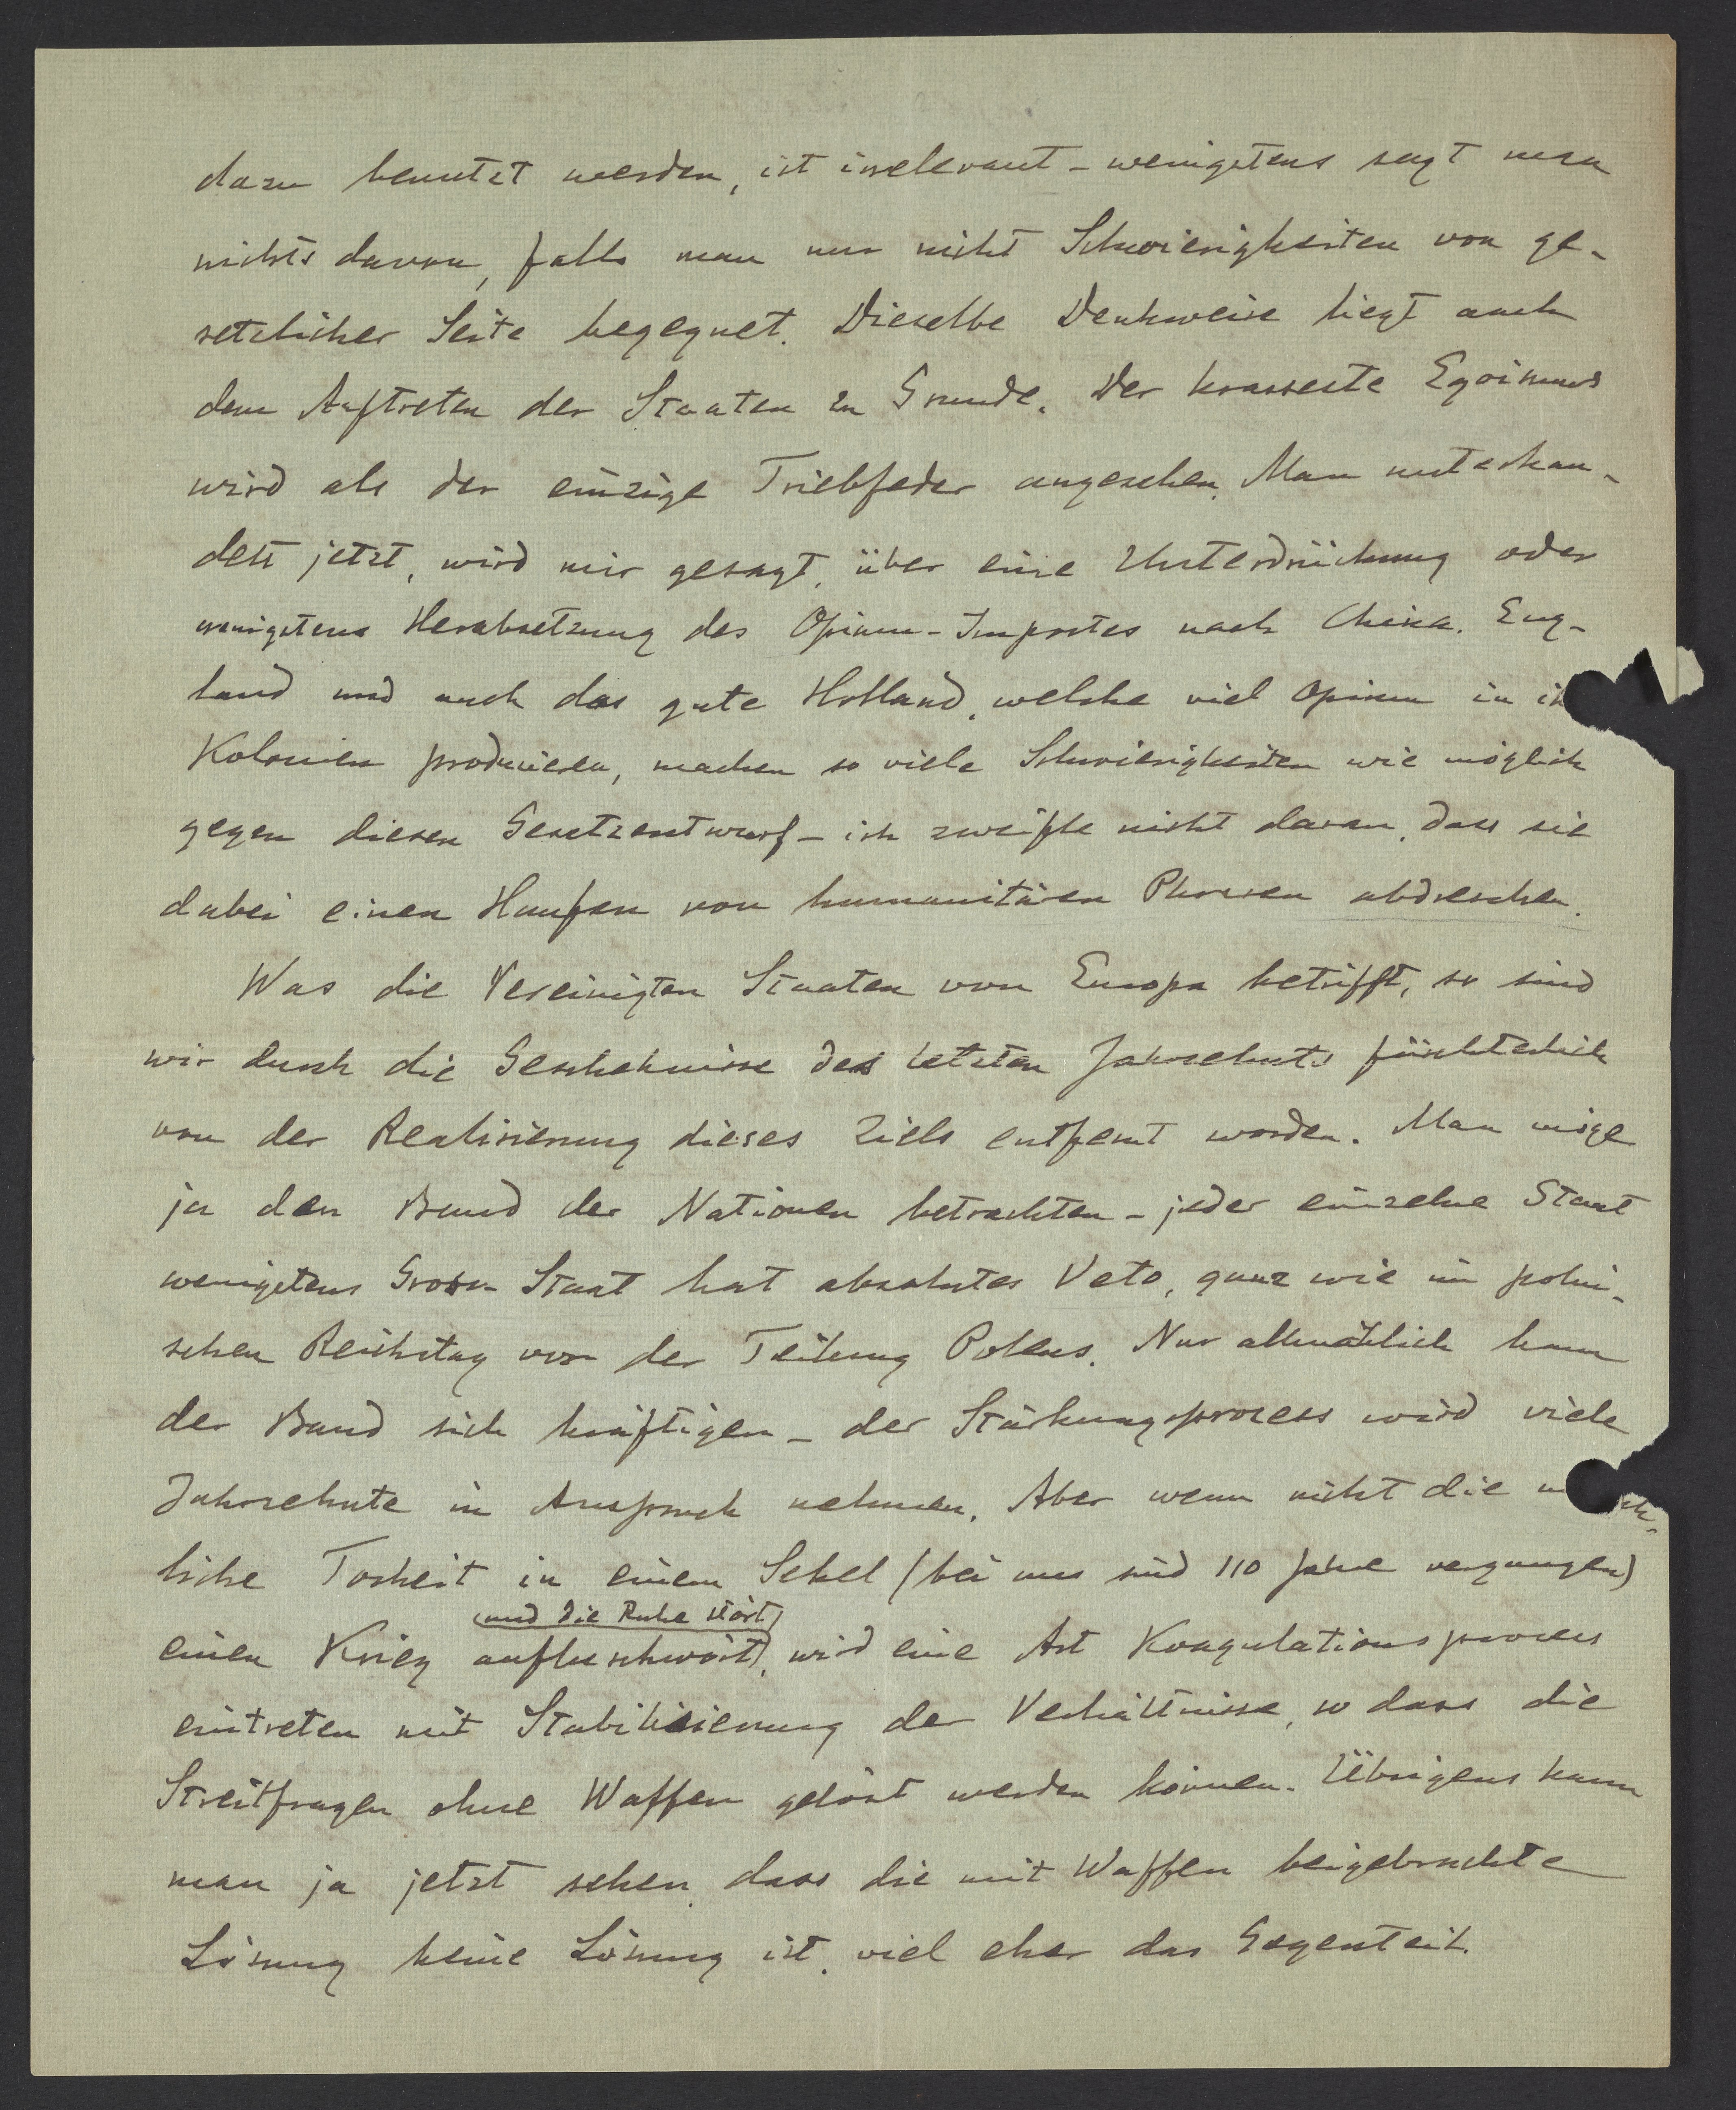 dazu benutzt werden, ist irrelevant - wenigstens sagt man
nichts davon, falls man nur nicht Schwierigkeiten von ge-
setzlicher Seite begegnet. Dieselbe Denkweise liegt auch
dem Auftreten der Staaten zu Grunde. Der krasseste Egoismus
wird als der einzige Triebfeder angesehen. Man unterhan-
delt jetzt, wird mir gesagt, über eine Unterdrückung oder
wenigstens Herabsetzung des Opium-Importes nach China. Eng-
land und auch das gute Holland, welche viel Opium in ih
Kolonien produzieren, machen so viele Schwierigkeiten wie möglich
gegen diesen Gesetzentwurf - ich zweifle nicht daran, dass sie
dabei einen Haufen von humanitären Phrasen abdreschen.
Was die Vereinigten Staaten von Europa betrifft, so sind
wir durch die Geschehnisse des letzten Jahrzehnts fürchterlich
von der Realisierung dieses Ziels entfernt worden. Man möge
ja den Bund der Nationen betrachten - jeder einzelne Staat
wenigstens Gross-Staat hat absolutes Veto, ganz wie im polni-
schen Reichstag vor der Teilung Polens. Nur allmählich kann
der Bund sich kräftigen - der Stärkungsprozess wird viele
Jahrzehnte in Anspruch nehmen. Aber wenn nicht die
liche Torheit in einem Sekel (bei uns sind 110 Jahre vergangen)
und die Ruhe stört
einen Krieg aufbeschwört, wird eine Art Koagulationsprocess
eintreten mit Stabilisierung der Verhältnisse, so dass die
Streitfragen ohne Waffen gelöst werden können. Übrigens kann
man ja jetzt sehen, dass die mit Waffen beigebrachte
Lösung keine Lösung ist, viel eher das Gegenteil.